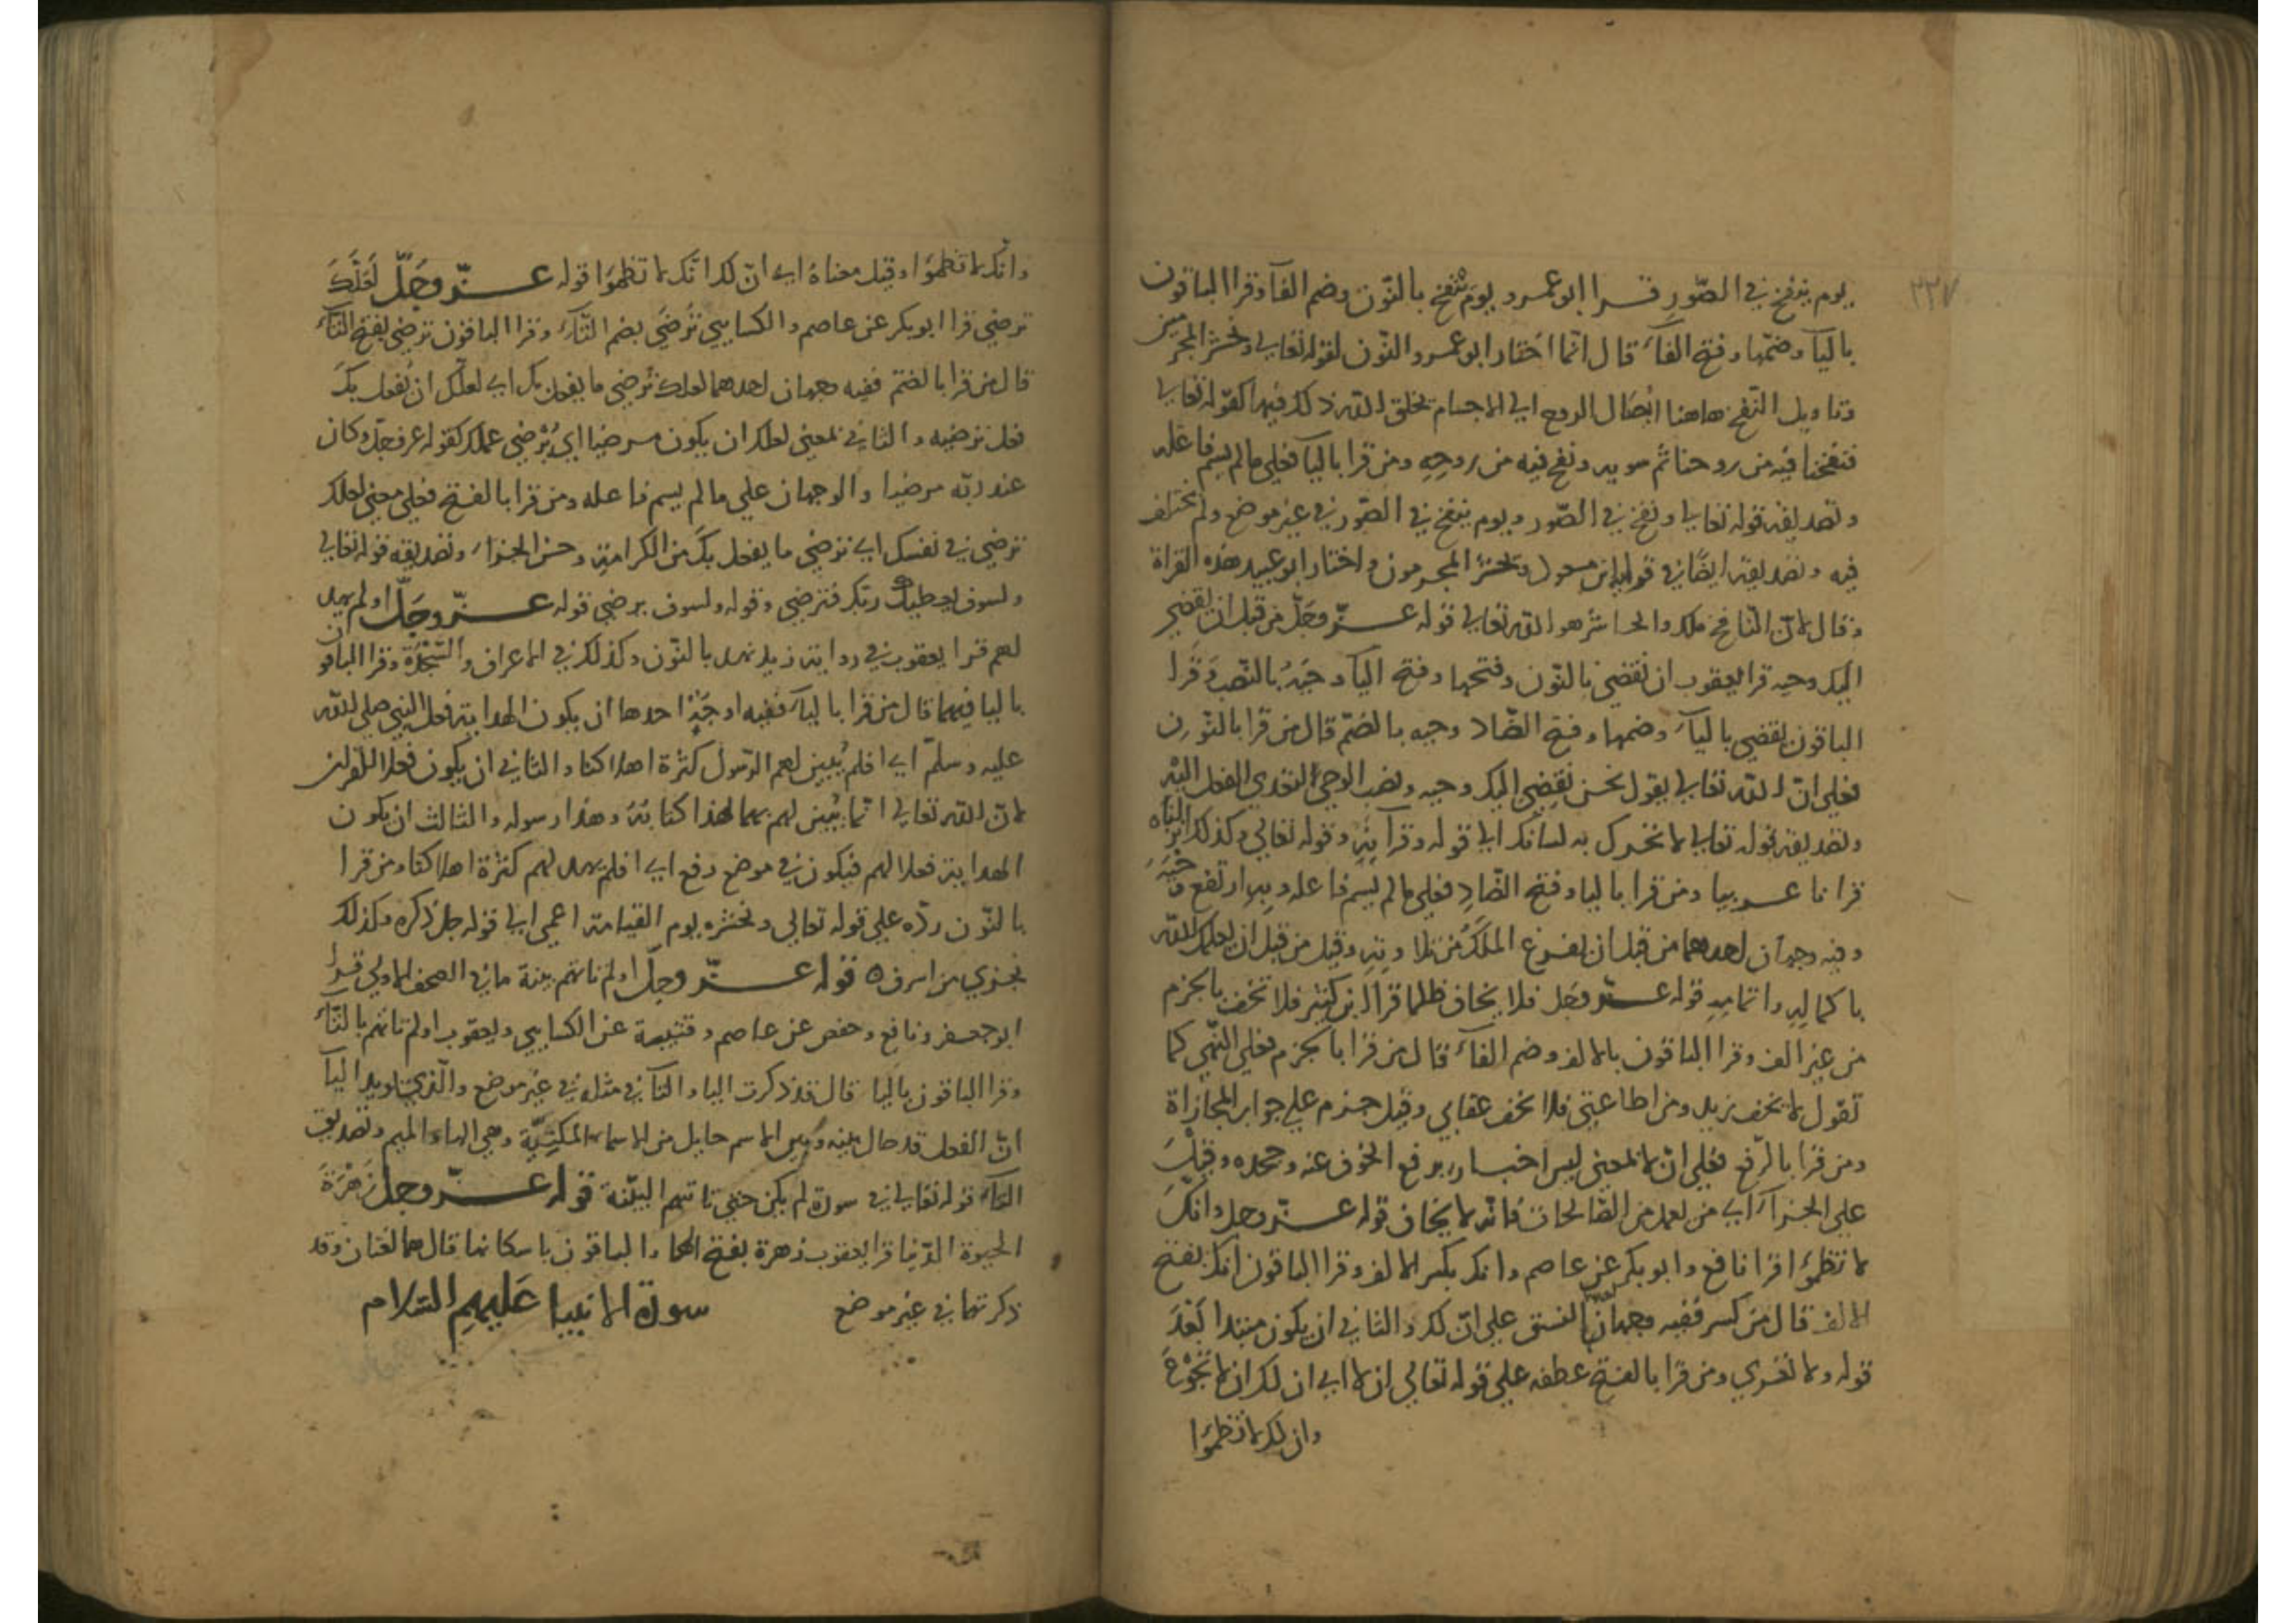 ٢٣٧
يوم ينفخ في الصّور قرا ابو عمرو يوم ننفخ بالنّون وضم الفآ وقرا الباقون
باليآ وضمّها وفتح الفآء قال انّما اختار ابو عمرو النّون لقوله تعالى ونحشر المجرمين
وتاويل النّفخ هاهنا ايصال الروح الى الاجسام بخلق الله ذلك فيها كقوله تعالى
فنفخنا فيه من روحنا ثم سويه ونفخ فيه من روحه ومن قرا باليآ فعلى ما لم يسم فاعله
وتصديقه قوله تعالى ونفخ في الصّور ويوم ينفخ في الصّور في غير موضع ولم يختلف
فيه وتصديقه ايضًا في قراة ابن مسعود ويحشر المجرمون واختار ابو عبيد هذه القراة
وقال لانّ النّافخ ملك والحاشر هو الله تعالى قوله عزّ وجلّ من قبل ان يقضى
اليك وحيه قرا يعقوب ان نقضي بالنّون وفتحها وفتح اليآ وحيَهُ بالنّصب وقرا
الباقون يقضى باليآء وضمها وفتح الضّاد وحيه بالضّم قال من قرا بالنّون
فعلى انّ الله تعالى يقول نحن نقضي اليك وحيه ونصب الوحي لتعدي الفعل اليه
وتصديقه قوله تعالى لا تحرك به لسانك الى قوله وقرآنه وقوله تعالى وكذلك انزلناه
قرانا عربيا ومن قرا باليا وفتح الضّاد فعلى ما لم يسم فاعله وبه ارتفع وحيه
وفيه وجهان احدهما من قبل ان يفرغ الملَكُ من تلاوته وقيل من قبل ان يعلمك الله
باكماله واتمامه قوله عزّ وجل فلا يخاف ظلما قرا ابن كثير فلا تخف بالجزم
من غير الف وقرا الباقون بالالف وضم الفآء قال من قرا بالجزم فعلى النّهي كما
تقول لا يخف زيد ومن اطاعني فلا يخف عقابي وقيل جزم على جواب المجازاة
ومن قرا بالرّفع فعلى انّ المعنى ليس اخبار برفع الخوف عنه وجحده وقيل
على الجزآء اي من يعمل من الصّالحات فانّه لا يخاف قوله عزّ وجل وانّك
لا تظمؤا قرا نافع وابو بكر عن عاصم وانك بكسر الالف وقرا الباقون انك بفتح
الالف قال من كسر ففيه وجهان النسق على انّ لك والثاني ان يكون مبتدا بَعْدَ
قوله ولا تعرى ومن قرا بالفتح عطفه على قوله تعالى ان لا اي ان لك ان لا تجوع
وان لك لا تظمؤا
وانّك لا تظمؤا وقيل معناهُ اي انّ لك انّك لا تظمؤا قوله عزّ وجلّ لَعَلَّكَ
ترضى قرا ابو بكر عن عاصم والكسايي تُرضَى بضم التّآء وقرا الباقون ترضى بفتح التآء
قال من قرا بالضّم ففيه وجهان احدهما لعلك تُرضى ما يفعل بك اي لعلّك ان يُفعل بكَ
فعل ترضيه والثاني لمعنى لعلك ان يكون مرضيا اي يُرْضى عملك كقوله عز وجل وكان
عند ربّه مرضيا والوجهان على ما لم يسم فاعله ومن قرا بالفتح فعلى معنى لعلك
ترضى في نفسك اي ترضى ما يفعل بكَ من الكرامة وحسن الجزاء وتصديقه قوله تعالى
ولسوف يعطيك ربّك فترضى وقوله ولسوف يرضى قوله عزّ وجلّ اولم يهد
لهم قرا يعقوب في رواية زيد نهد بالنّون وكذلك في الاعراف والسّجدة وقرا الباقون
باليا فيهما قال من قرا باليآء ففيه اوجهٌ احدها ان يكون الهداية فعل النبي صلى الله
عليه وسلّم اي افلم يُبين لهم الرّسول كثرة اهلاكنا والثاني ان يكون فعلا للقران
لانّ الله تعالى انّما يُبيّن لهم بهما لهذا كتابهُ وهذا رسوله والثالث ان يكون
الهداية فعلا لهم فيكون في موضع رفع اي افلم يهد لهم كثرة اهلاكنا ومن قرا
بالنّون ردّه على قوله تعالى ونحشره يوم القيامة اعمى الى قوله جل ذكره وكذلك
نجزي من اسرف ه قوله عزّ وجلّ اولم تاتهم بينة ما في الصحف الاولى قرا
ابو جعفر ونافع وحفص عن عاصم وقتيبة عن الكسايي ويعقوب اولم تاتهم بالتّآء
وقرا الباقون باليا قال قد ذكرت اليا والتآ في مثله في غير موضع والّذي يويد اليا
انّ الفعل قد حال بينه وبين الاسم حايل من الاسماء المكنيّة وهي الهاء والميم وتصديق
التآء قوله تعالى في سورة لم يكن حتى تاتيهم البيّنة قوله عزّ وجل زَهْرَةَ
الحيوة الدّنيا قرا يعقوب زهرة بفتح الها والباقون باسكانها قال هما لغتان وقد
ذكرتها في غير موضع سورة الانبيا عَلَيهِم السّلام